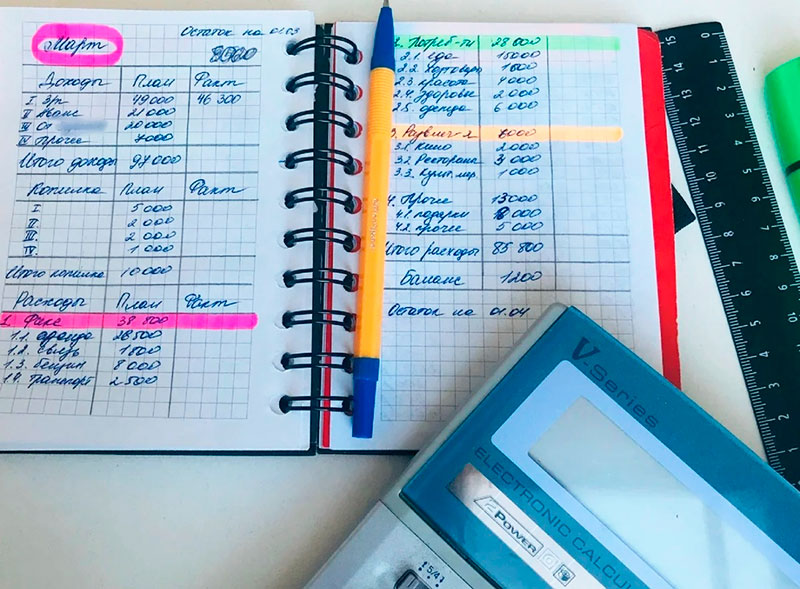 Остаток на 01.03
Март
Доходы План Факт
I З/п 49000 46 300
II Аванс 21 000
III От 20 000
IV Прочие 7000
Итого доходы 97 000
Копилка План Факт
I 5 000
II. 2 000
III. 2 000
IV. 1 000
Итого копилка 10 000
Расходы План Факт
1. Фикс 38 800
1.1. аренда 26 500
1.2. связь
1.3. бензин 8 000
1.4. транспорт 2 500
2. Потреб-ти 28 000
2.1. еда 15000
2.2. 1000
2.3. красота 4 000
2.4. здоровье 2 000
2.5. одежда 6 000
3. Развлеч-я 6000
3.1. Кино 2 000
3.2. Рестораны 3 000
3.3. 1 000
4. Прочие 13000
4.1. подарки 8 000
4.2. прочее 5 000
Итого расходы 85 800
Баланс 1200
Остаток на 01.04
V.Series
ELECTRONIC CALCU
POWER
5/4
0 1 2 3 4 5 6 7 8 9 10 11
15